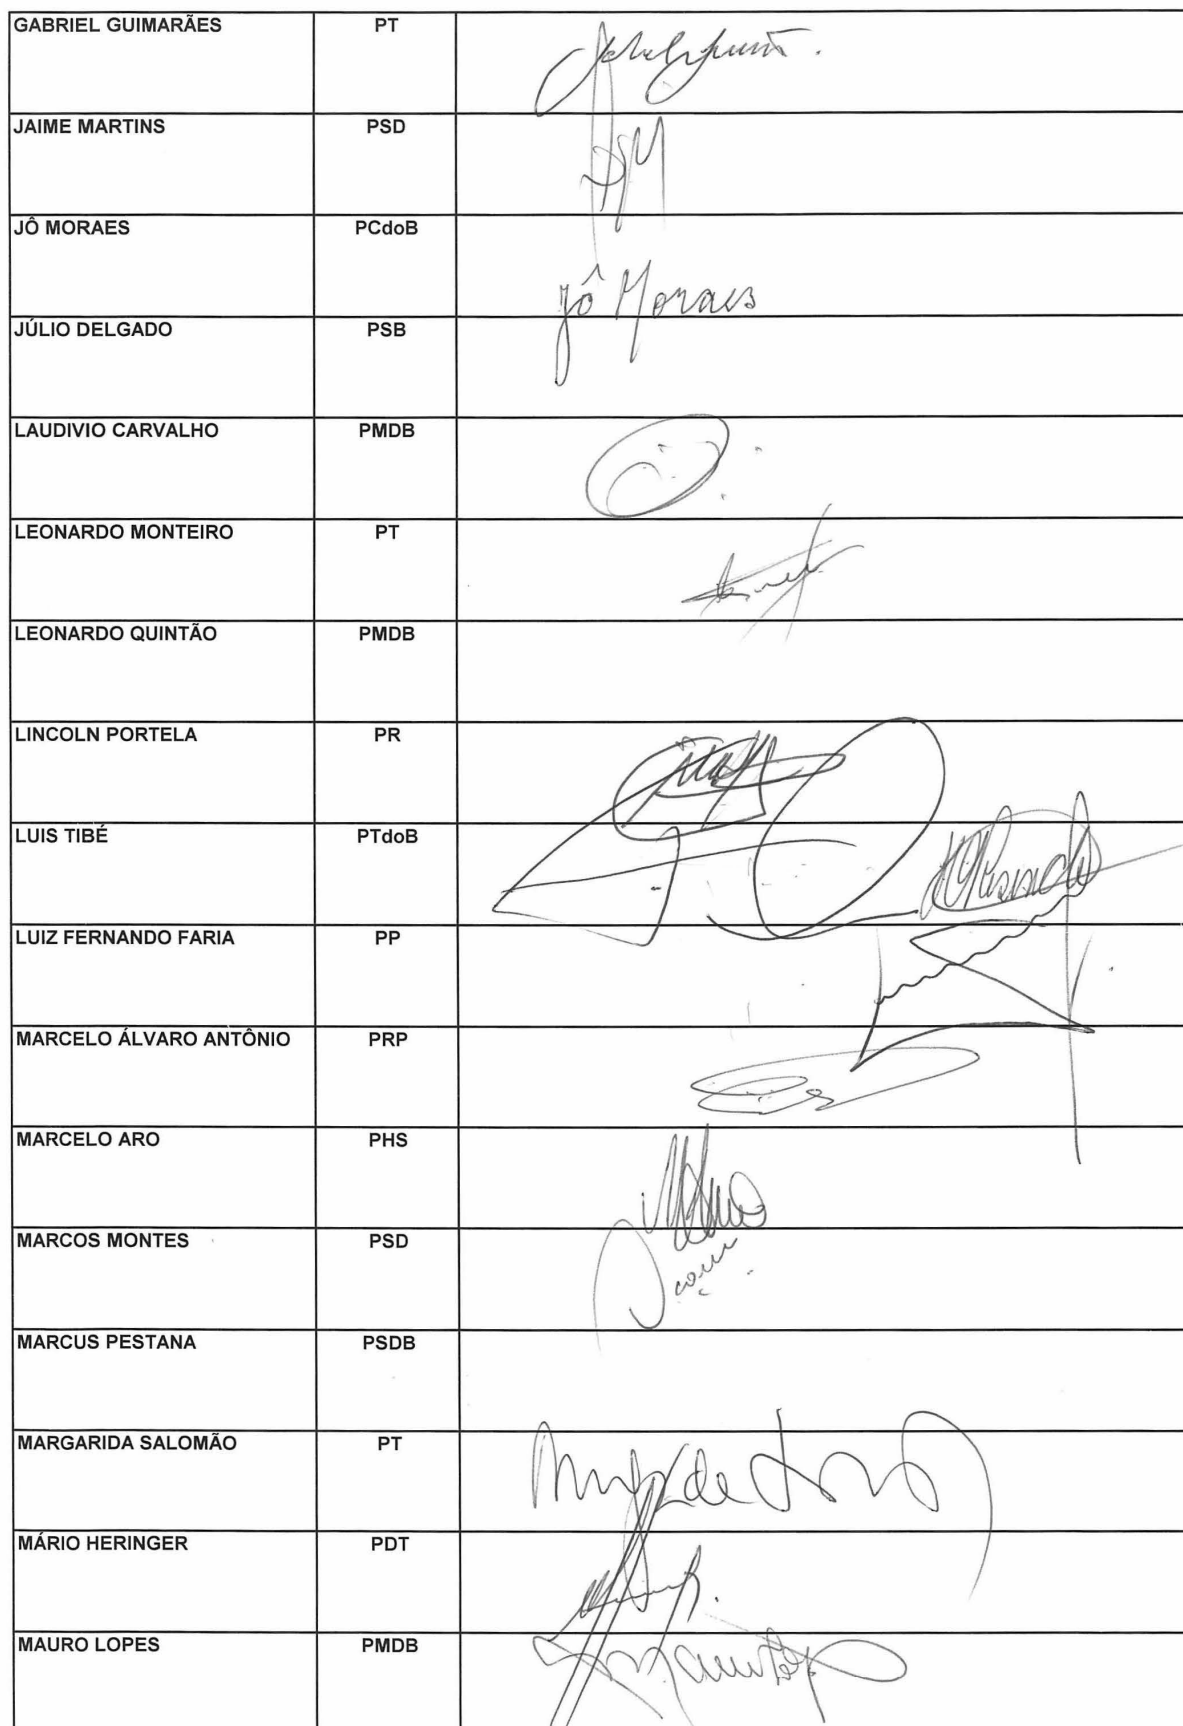 GABRIEL GUIMARÃES PT
JAIME MARTINS PSD
JÔ MORAES PCdoB
Jô Moraes
JÚLIO DELGADO PSB
LAUDIVIO CARVALHO PMDB
LEONARDO MONTEIRO PT
LEONARDO QUINTÃO PMDB
LINCOLN PORTELA PR
LUIS TIBÉ PTdoB
LUIZ FERNANDO FARIA PP
MARCELO ÁLVARO ANTÔNIO PRP
MARCELO ARO PHS
MARCOS MONTES PSD
MARCUS PESTANA PSDB
MARGARIDA SALOMÃO PT
MÁRIO HERINGER PDT
MAURO LOPES PMDB